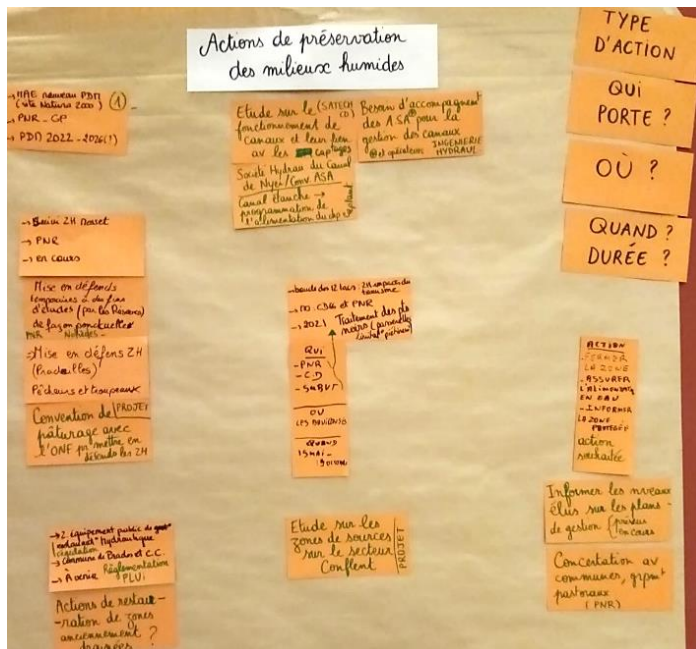 Actions de préservation
des milieux humides
TYPE
D'ACTION
QUI
PORTE ?
OÙ ?
QUAND ?
DURÉE ?
→ MAE nouveau PDM
(site Natura 2000) ①
→ PNR - GP
→ PDM 2022-2026(?)
Etude sur le (SATECH
CD)
fonctionnement de
canaux et leur lien
av les captages
Société Hydrau du Canal
de Nyer/Conv. ASA
Canal étanche →
programmation de
l'alimentation du
Besoin d'accompagnemt
des ASA pour la
gestion des canaux
et opérateurs INGENIERIE
HYDRAUL
→ Suivi ZH Nosset
→ PNR
→ en cours
Mise en défends
temporaires à des fins
d'études (par les Réserves)
de façon ponctuelle
PNR
→ Mise en défens ZH
(Pradeilles)
Pêcheurs et troupeaux
Convention de PROJET
pâturage avec
l'ONF pr mettre en
défends les ZH
→ boucle des 12 lacs : ZH impactées
tourisme
→ CD66 et PNR
→ 2021
Traitement des pts
noirs (passerelles,
limitat° piétinemt
QUI
- PNR
- C.D
- SMBVT
OU
LES BOUILLOUSES
QUAND
15 MAI -
ACTION
- FERMER
LA ZONE
- ASSURER
L'ALIMENTAT°
EN EAU
- INFORMER
LA ZONE
PROTEGÉE
action
souhaitée
Informer les nveaux
élus sur les plans
de gestion
en cours
Concertation av
communes, grpmt
pastoraux
(PNR)
Etude sur les
zones de sources
sur le secteur
Conflent
PROJET
→ 2. Equipement public de gest°
Hydraulique
régulation
→ Commune de Prades et C.C.
→ À venir Réglementation
PLUi
Actions de restau-
-ration de zones
anciennement
drainées ?